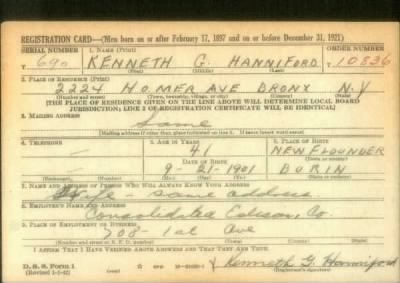 REGISTRATION CARD—(Men born on or after February 17, 1897 and on or before December 31, 1921)
SERIAL NUMBER 1. NAME (Print) ORDER NUMBER
T 690 KENNETH G. HANNIFORD T 10836
(First) (Middle) (Last)
2. PLACE OF RESIDENCE (Print)
2224 HOMER AVE BRONX N.Y
(Number and street) (Town, township, village, or city) (County) (State)
[THE PLACE OF RESIDENCE GIVEN ON THE LINE ABOVE WILL DETERMINE LOCAL BOARD
JURISDICTION; LINE 2 OF REGISTRATION CERTIFICATE WILL BE IDENTICAL]
3. MAILING ADDRESS
Same
[Mailing address if other than place indicated on line 2. If same insert word same]
4. TELEPHONE 5. AGE IN YEARS 6. PLACE OF BIRTH
41 NEW FLOUNDER
DATE OF BIRTH (Town or county)
9-21-1901 BURIN
(Mo.) (Day) (Yr.) (State or country)
7. NAME AND ADDRESS OF PERSON WHO WILL ALWAYS KNOW YOUR ADDRESS
Wife - same address
8. EMPLOYER'S NAME AND ADDRESS
Consolidated Edison, Co.
9. PLACE OF EMPLOYMENT OR BUSINESS
708 - 1st Ave
(Number and street or R. F. D. number) (Town) (County) (State)
I AFFIRM THAT I HAVE VERIFIED ABOVE ANSWERS AND THAT THEY ARE TRUE.
D. S. S. Form 1
(Revised 1-1-42) (over) Kenneth G Hanniford
(Registrant's signature)